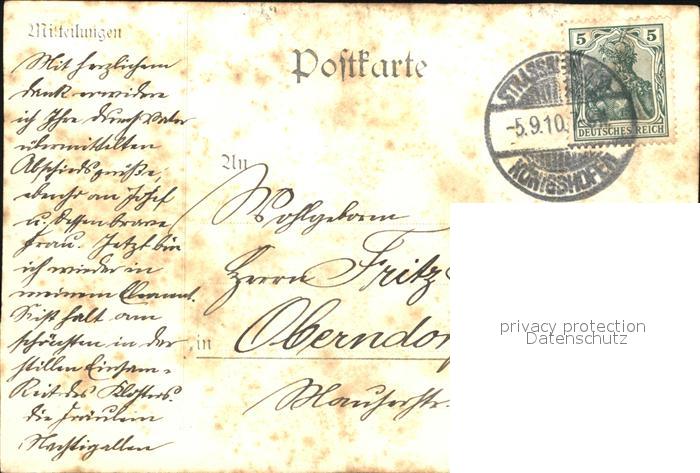 Mitteilungen
Mit herzlichem
Dank erwidere
ich Ihre durch Vater
übermittelten
Abschiedsgrüße,
ebenso an Josef
u. dessen brave
Frau. Jetzt bin
ich wieder in
meinem
ist halt am
schönsten in der
stillen Einsam-
keit des Klosters.
die Fräulein
Nachtigallen
Postkarte
5 5
DEUTSCHES REICH
STRASSBURG
-5.9.10.
KÖNIGSHOFEN
An
Wohlgeboren
Herrn Fritz
in Oberndo
Mauserstr.
privacy protection
Datenschutz